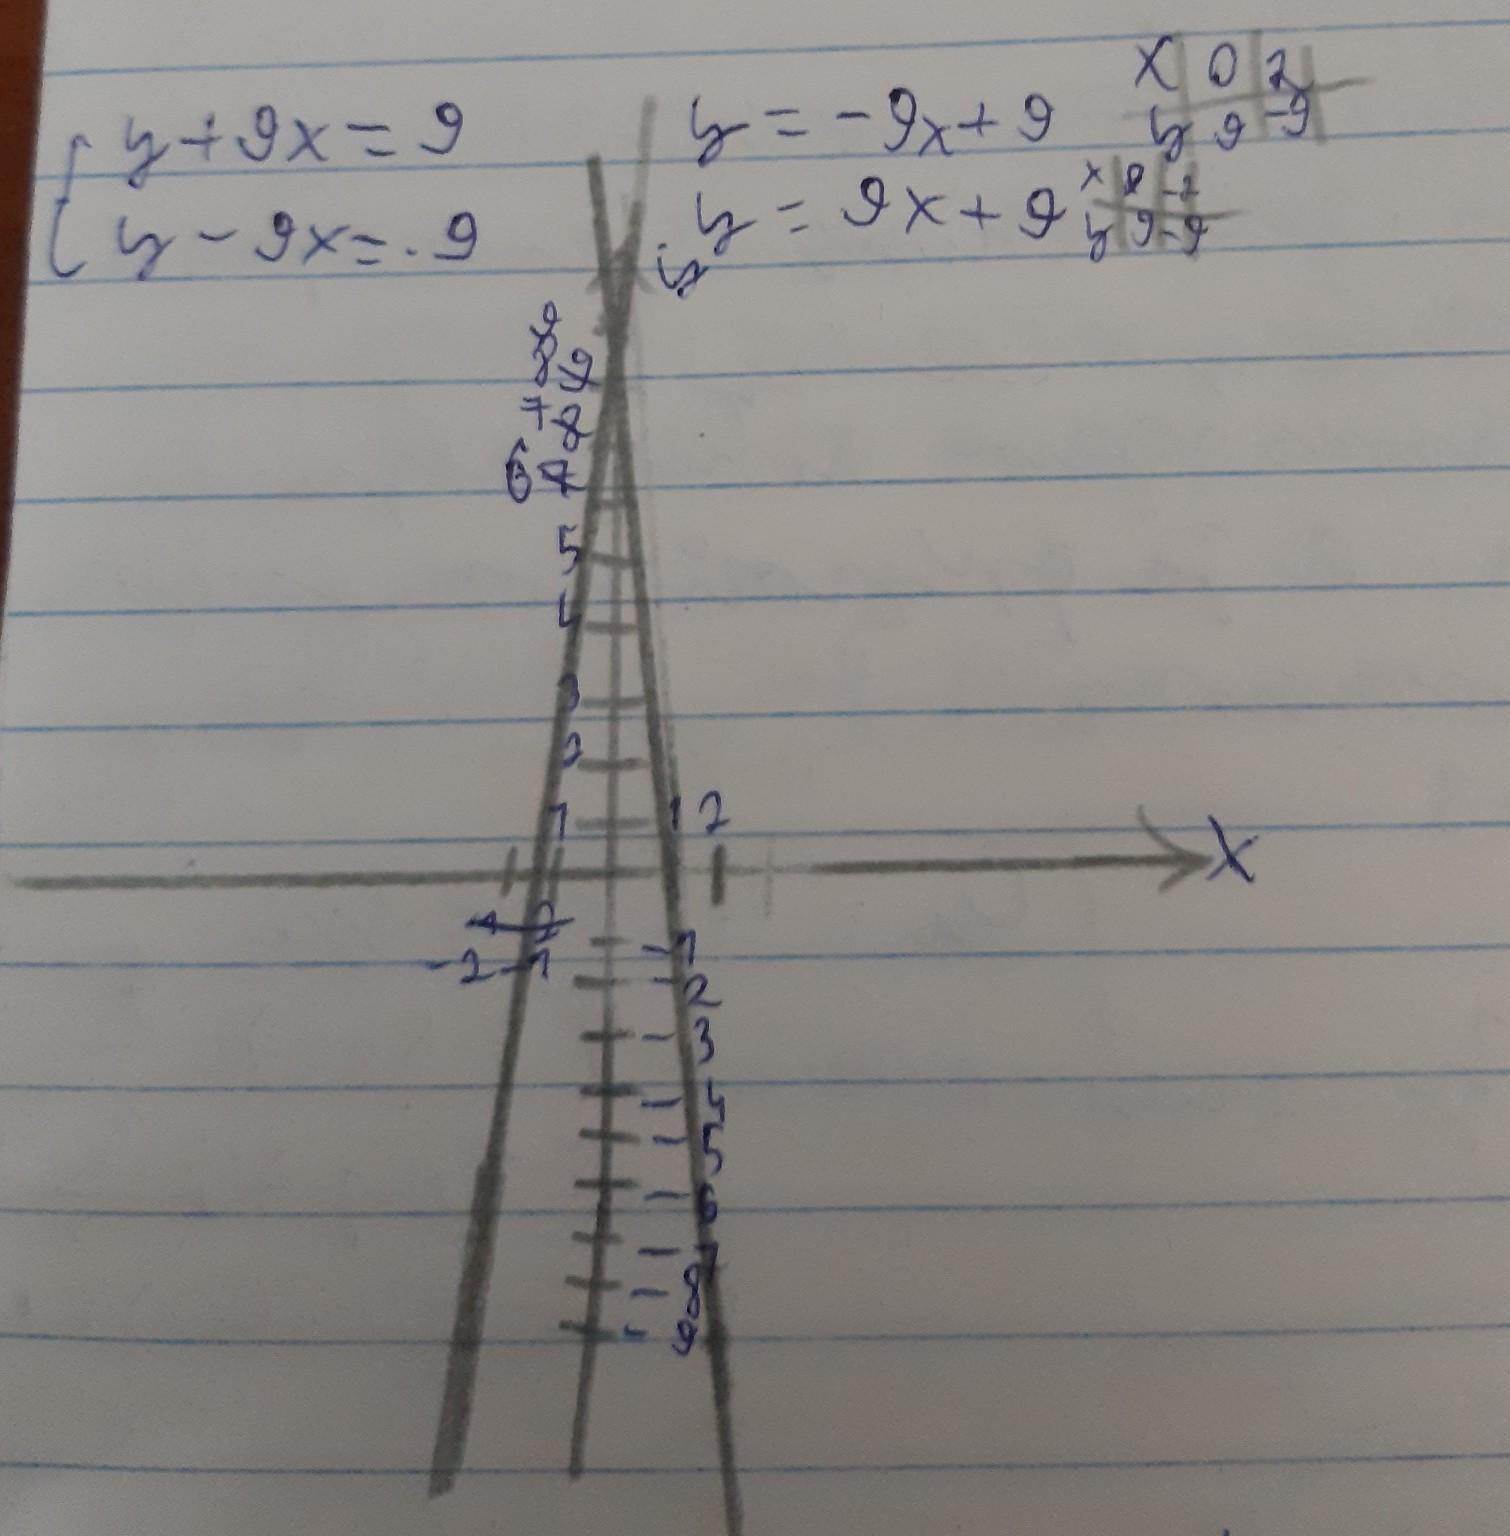 y + 9x = 9
y = -9x + 9
x 0 2
y 9 -9
y - 9x = . 9
y = 9x + 9
x 0 -2
y 9 -9
y
9
8 9
7 8
6 7
5
4
3
2
1
1 2
X
-2 -1
-1
-2
-3
-5
-5
-6
-7
-8
-9